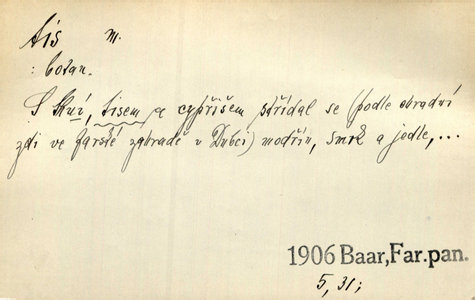 tis m.
: botan.
S thují, tisem a cypřišem střídal se (podle ohradní
zdi ve farské zahradě v Dubci) modřín, smrk a jedle, ...
1906 Baar, Far. pan.
5, 31;